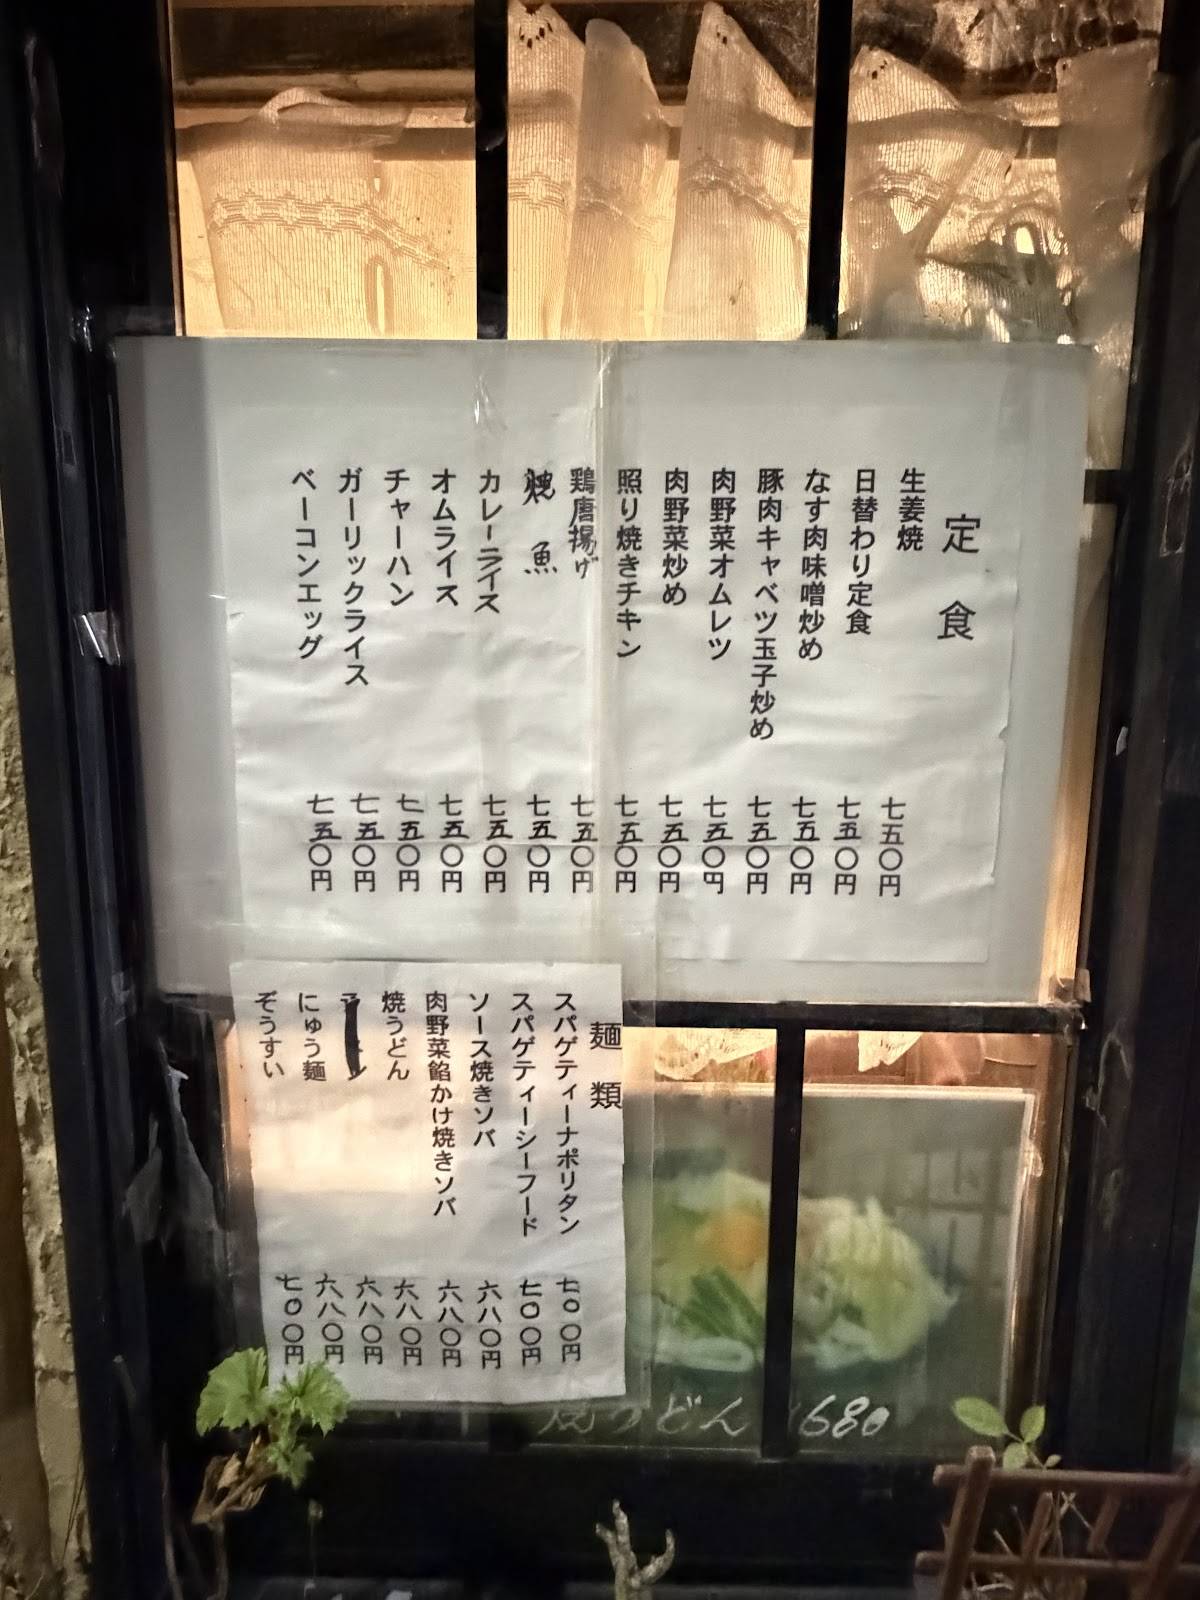 定食
生姜焼 七五〇円
日替わり定食 七五〇円
なす肉味噌炒め 七五〇円
豚肉キャベツ玉子炒め 七五〇円
肉野菜オムレツ 七五〇円
肉野菜炒め 七五〇円
照り焼きチキン 七五〇円
鶏唐揚げ 七五〇円
焼魚 七五〇円
カレーライス 七五〇円
オムライス 七五〇円
チャーハン 七五〇円
ガーリックライス 七五〇円
ベーコンエッグ 七五〇円
麺類
スパゲティーナポリタン 七〇〇円
スパゲティーシーフード 七〇〇円
ソース焼きソバ 六八〇円
肉野菜餡かけ焼きソバ 六八〇円
焼うどん 六八〇円
六八〇円
にゅう麺 六八〇円
ぞうすい 七〇〇円
焼うどん 680